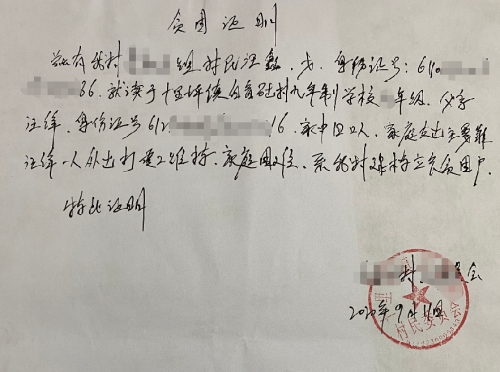 贫困证明
兹有我村 组村民汪鑫，身份证号：610
86，就读于十里坪镇 村九年制学校 年级，父亲
汪 ，身份证号612 16，家中四口人，家庭支出主要靠
汪 一人外出打工维持，家庭困难，系我村建档立卡贫困户。
特此证明
村 委会
2020年9月11日
村民委员会